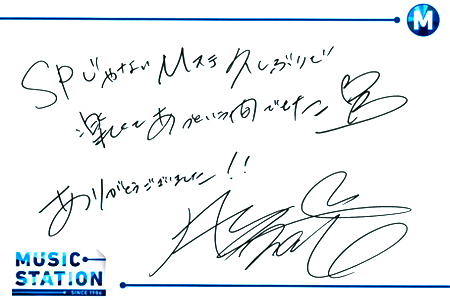 M
SPじゃないMステ久しぶりで
楽しくてあっという間でした
ありがとうございました!!
MUSIC
STATION
SINCE 1986